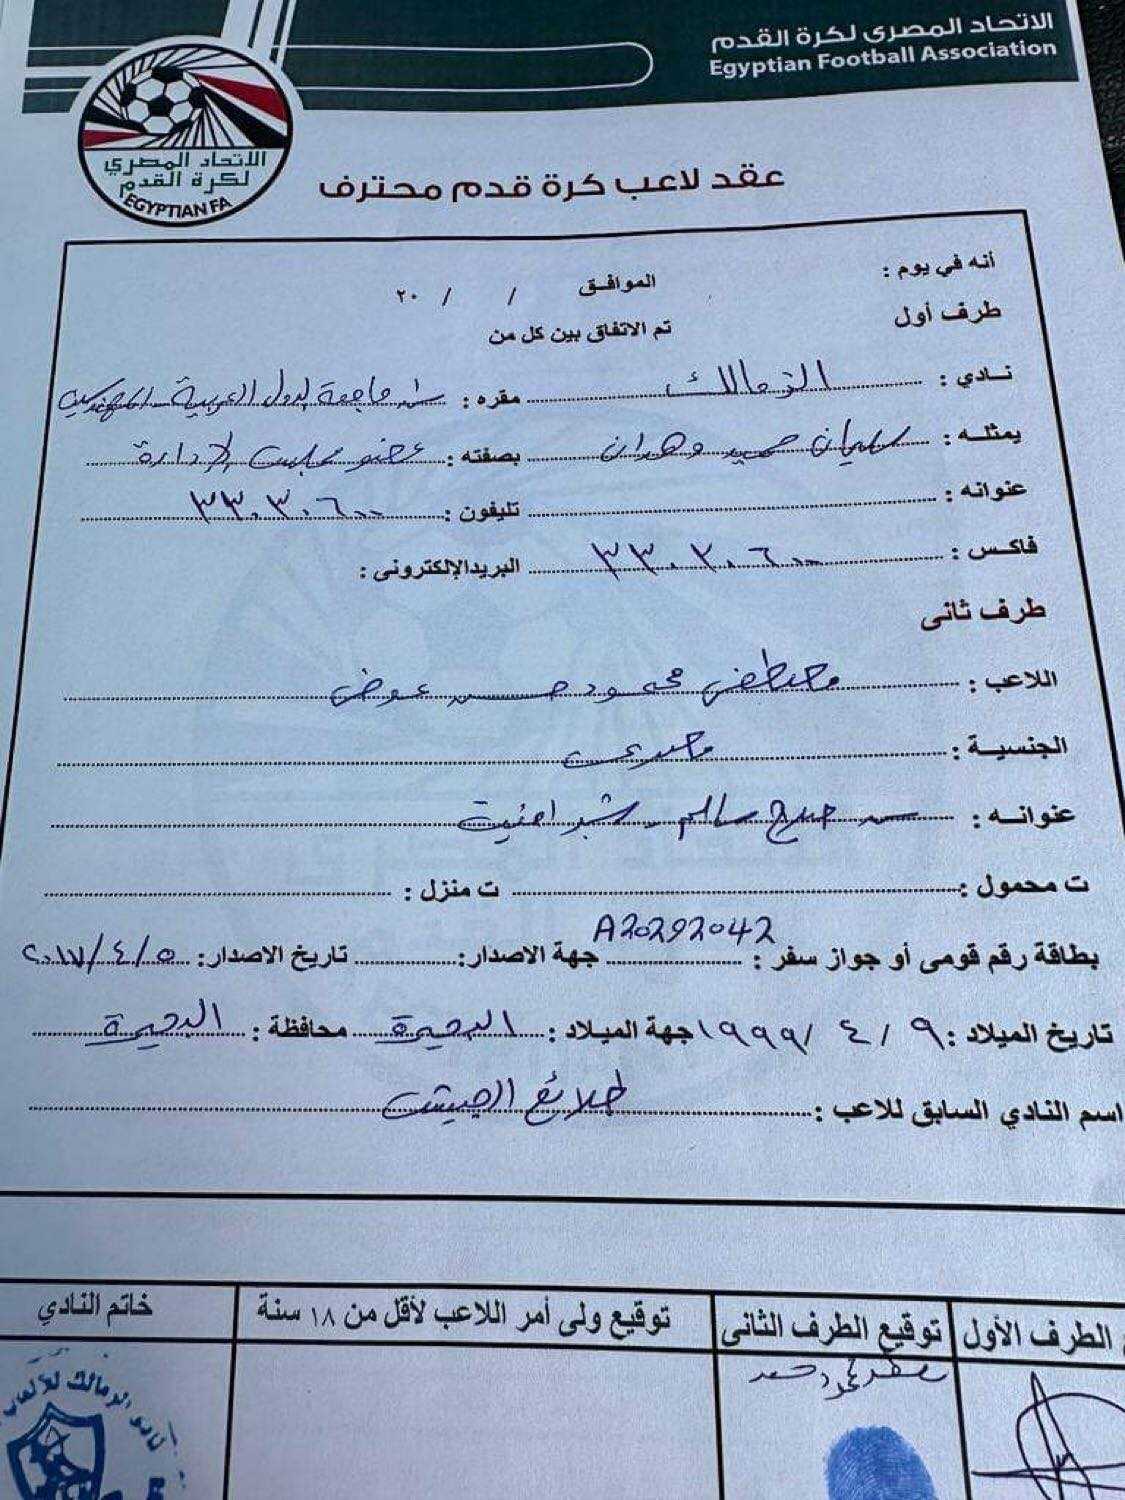 الاتحاد المصرى لكرة القدم
Egyptian Football Association
الاتحاد المصري
لكرة القدم
EGYPTIAN FA
عقد لاعب كرة قدم محترف
أنه في يوم : الموافق / / ٢٠
طرف أول
تم الاتفاق بين كل من
نادي : الزمالك مقره : ش جامعة الدول العربية - المهندسين
يمثله : سليمان حميد وهدان بصفته : عضو مجلس الإدارة
عنوانه : تليفون : ٣٣٠٣٠٦٠٠
فاكس : ٣٣٠٣٠٦٠٠ البريد الإلكترونى :
طرف ثانى
اللاعب : مصطفى محمود حسن عوض
الجنسية : مصرى
عنوانه : ش صلاح سالم - شبراخيت
ت محمول : ت منزل :
بطاقة رقم قومى أو جواز سفر : A20292042 جهة الاصدار: تاريخ الاصدار: ٢٠١٧/٤/٥
تاريخ الميلاد : ٩ / ٤ / ١٩٩٩ جهة الميلاد : البحيرة محافظة : البحيرة
اسم النادي السابق للاعب : طلائع الجيش
الطرف الأول توقيع الطرف الثانى توقيع ولى أمر اللاعب لأقل من ١٨ سنة خاتم النادي
مصطفى محمود حسن
نادى الزمالك للألعاب